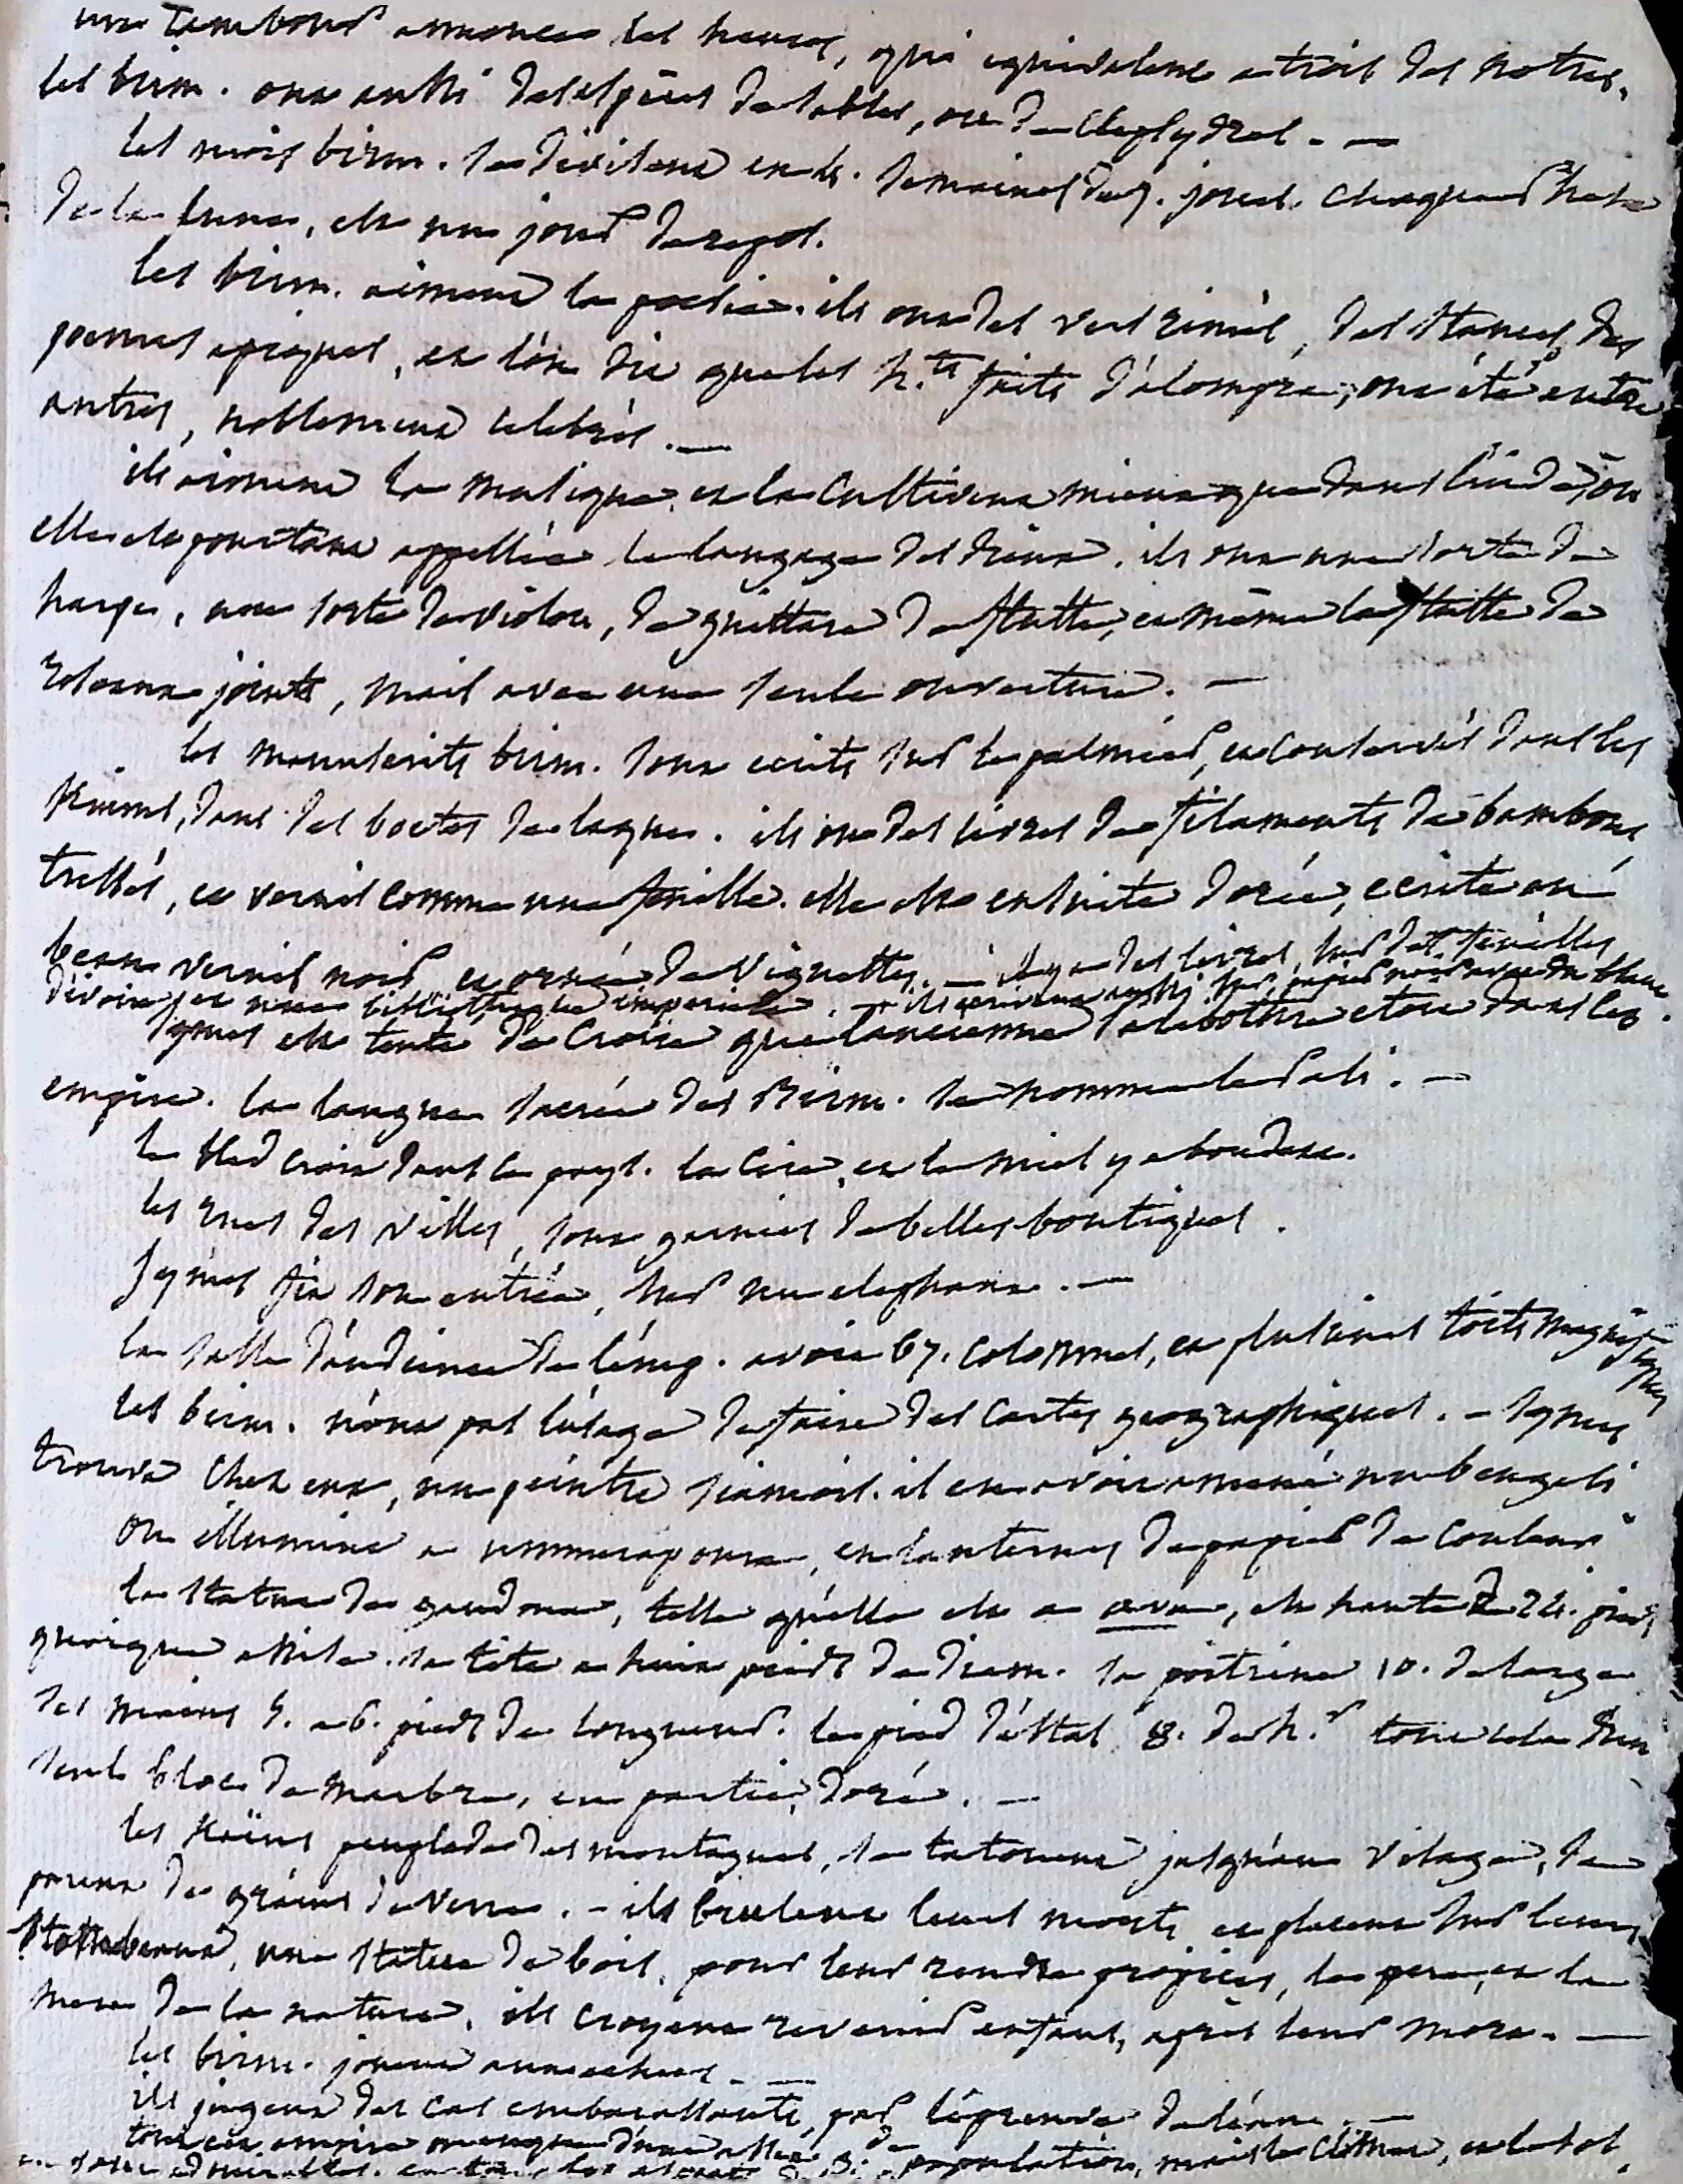 un tambour annonce les heures, qui equivalent a trois des notres.
les birm. ont aussi des especes de sables, ou de clepsydres. —
les mois birm. se divisent en 4. semaines de 7. jours. chaque phase
de la lune, est un jour de repos.
les birm. aiment la poesie. ils ont des vers rimés, des stances, des
poemes epiques, et l'on dit que les h.ts faits d'alompra, ont été entre
autres, noblement celebrés. —
ils aiment la musique, et la cultivent mieux que dans l'inde, ou
elle est pourtant appellée le langage des dieux. ils ont une sorte de
harpe, une sorte de violon, de guittare de flutte, et même la flutte de
roseaux joints, mais avec une seule ouverture. —
les manuscrits birm. sont ecrits sur le palmier, et conservés dans les
, dans des boetes de laque. ils ont des livres de filaments de bambous
tressés, et vernis comme une feuille. elle est ensuite dorée, ecrite en
beau vernis noir et ornée de vignettes. — il y a des livres, sur des feuilles
d'ivoire, et une bibliotheque imperiale. — ils ecrivent aussi sur papier noir avec du blanc.
Symes est tenté de croire que l'ancienne Palibothra etoit dans cet
empire. la langue sacrée des Birm. se nomme le Pali. —
le bled croit dans le pays. la cire, et le miel y abondent.
les rues des villes, sont garnies de belles boutiques.
Symes fit son entrée, sur un elephant. —
la salle d'audience de l'emp. avoit 67. colonnes, et plusieurs toits magnifiques
les birm. n'ont pas l'usage de faire des cartes geographiques. — Symes
trouva chez eux, un peintre siamois. il en avoit amené un bengali
on illumine a ummerapoura, en lanternes de papier de couleur
la statue de gaudma, telle qu'elle est a ava, est haute de 24. pieds
quoique assise. sa tête a huit pieds de diam. sa poitrine 10. de large
ses mains 5. a 6. pieds de longueur. le pied d'estal 8. de h.r tout cela d'un
seul bloc de marbre, en partie doré. —
les Kaïns peuplade des montagnes, se tatouent jusqu'au visage, se
parent de grains de verre. — ils brulent leurs morts et placent sur leurs
tombeaux, une statue de bois, pour leur rendre propices, le pere, et la
mere de la nature. ils croyent revenir enfants, après leur mort. —
les birm. jouent aux echecs. —
ils jugent des cas embarassants, par l'épreuve de l'eau. —
tout cet empire manque d'une de population, mais le climat, et le sol,
sont admirables.